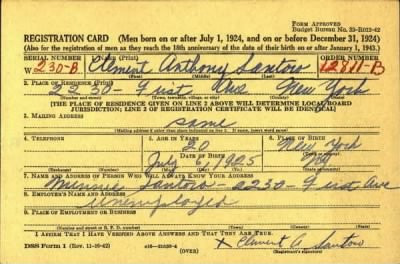 Form Approved
Budget Bureau No. 33-R012-42
REGISTRATION CARD (Men born on or after July 1, 1924, and on or before December 31, 1924)
(Also for the registration of men as they reach the 18th anniversary of the date of their birth on or after January 1, 1943.)
SERIAL NUMBER
1. NAME (Print)
ORDER NUMBER
W 230-B Clement Anthony Santoro 12811-B
(First) (Middle) (Last)
2. PLACE OF RESIDENCE (Print)
2230 - First Ave New York
(Number and street) (Town, township, village, or city) (County) (State)
[THE PLACE OF RESIDENCE GIVEN ON LINE 2 ABOVE WILL DETERMINE LOCAL BOARD
JURISDICTION; LINE 2 OF REGISTRATION CERTIFICATE WILL BE IDENTICAL]
3. MAILING ADDRESS
same
[Mailing address if other than place indicated on line 2. If same, insert word same]
4. TELEPHONE
5. AGE IN YEARS
20
6. PLACE OF BIRTH
New York
DATE OF BIRTH
July 6, 1925
(Mo.) (Day) (Yr.)
7. NAME AND ADDRESS OF PERSON WHO WILL ALWAYS KNOW YOUR ADDRESS
Minnie Santoro - 2230 - First Ave
8. EMPLOYER'S NAME AND ADDRESS
unemployed
9. PLACE OF EMPLOYMENT OR BUSINESS
(Number and street or R. F. D. number) (Town) (County) (State)
I AFFIRM THAT I HAVE VERIFIED ABOVE ANSWERS AND THAT THEY ARE TRUE.
DSS Form 1 (Rev. 11-16-42)
(OVER)
x Clement A. Santoro